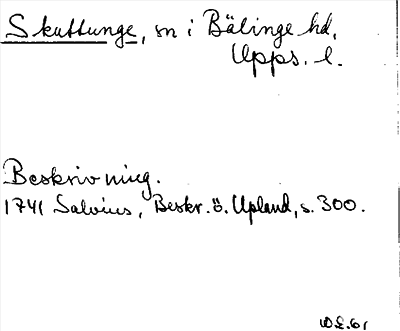 Skuttunge, sn i Bälinge hd,
Upps. l.
Beskrivning.
1741 Salvius, Beskr. ö. Upland, s. 300.